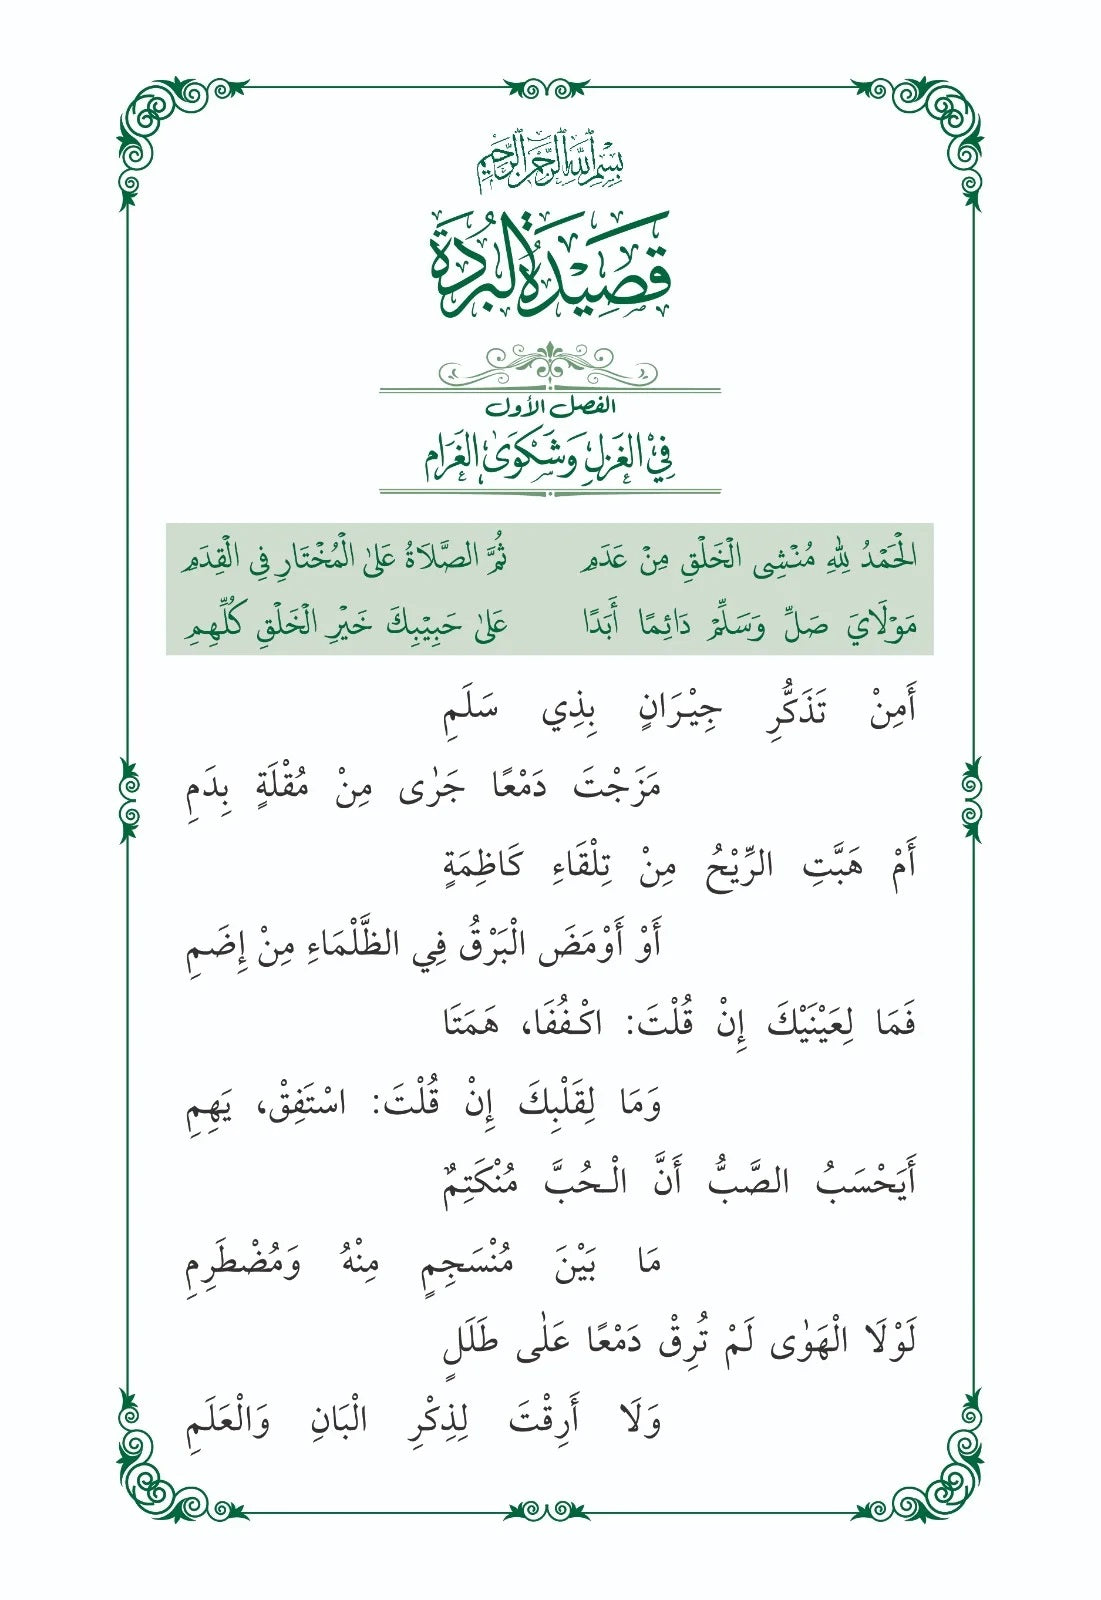 بِسْمِ اللهِ الرَّحْمٰنِ الرَّحِيْمِ
قَصِيْدَةُ الْبُرْدَةِ
الفصل الأول
فِيْ الْغَزَلِ وَشَكْوَى الْغَرَامِ
الْحَمْدُ لِلّٰهِ مُنْشِى الْخَلْقِ مِنْ عَدَمِ ثُمَّ الصَّلَاةُ عَلَى الْمُخْتَارِ فِي الْقِدَمِ
مَوْلَايَ صَلِّ وَسَلِّمْ دَائِمًا أَبَدًا عَلىٰ حَبِيْبِكَ خَيْرِ الْخَلْقِ كُلِّهِمِ
أَمِنْ تَذَكُّرِ جِيْرَانٍ بِذِي سَلَمِ
مَزَجْتَ دَمْعًا جَرٰى مِنْ مُقْلَةٍ بِدَمِ
أَمْ هَبَّتِ الرِّيْحُ مِنْ تِلْقَاءِ كَاظِمَةٍ
أَوْ أَوْمَضَ الْبَرْقُ فِي الظَّلْمَاءِ مِنْ إِضَمِ
فَمَا لِعَيْنَيْكَ إِنْ قُلْتَ: اكْفُفَا، هَمَتَا
وَمَا لِقَلْبِكَ إِنْ قُلْتَ: اسْتَفِقْ، يَهِمِ
أَيَحْسَبُ الصَّبُّ أَنَّ الْحُبَّ مُنْكَتِمٌ
مَا بَيْنَ مُنْسَجِمٍ مِنْهُ وَمُضْطَرِمِ
لَوْلَا الْهَوٰى لَمْ تُرِقْ دَمْعًا عَلٰى طَلَلٍ
وَلَا أَرِقْتَ لِذِكْرِ الْبَانِ وَالْعَلَمِ